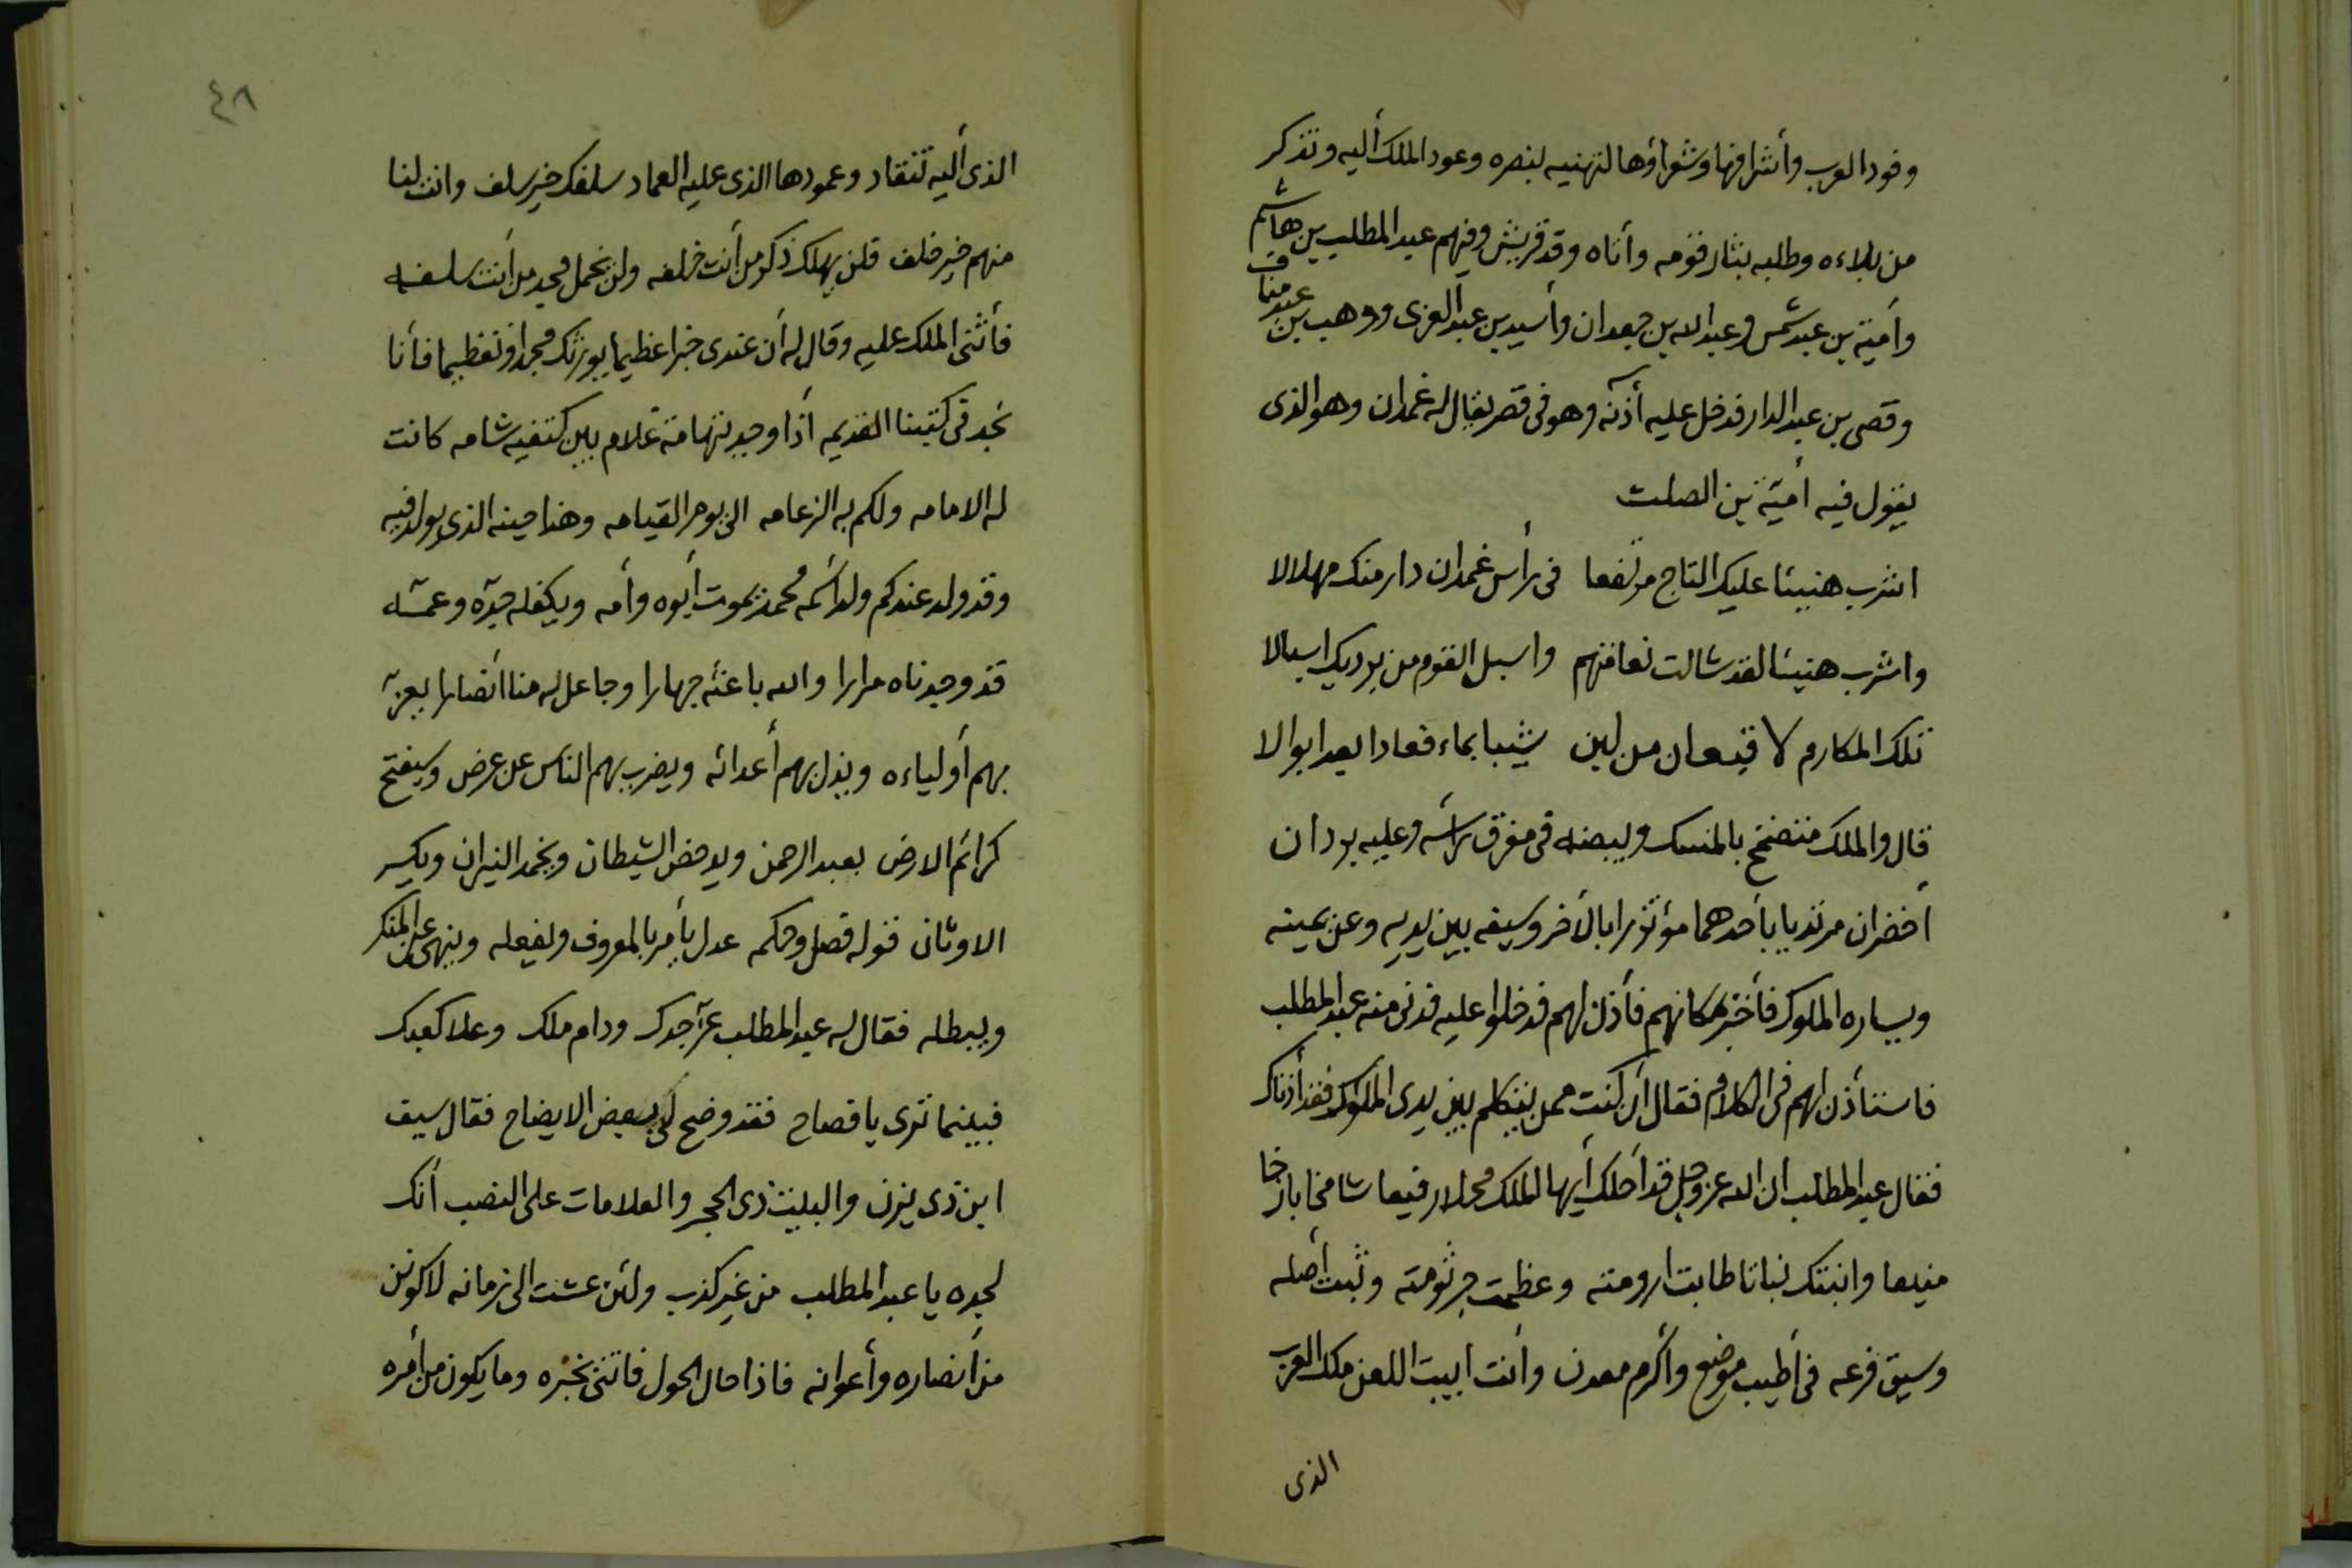 وفود العرب وأشرافها وشعراؤها لتهنيه بنصره وعود الملك أليه وتذكر
من بلاءه وطلبه بثار قومه وأتاه وفد قريش وفيهم عبد المطلب بن هاشم
وأمية بن عبد شمس وعبد الله بن جدعان وأسيد بن عبد العزى ووهب بن عبد مناف
وقصى بن عبد الدار فدخل عليه أذنه وهو فى قصر يقال له غمدان وهو الذى
يقول فيه أمية بن الصلت
اشرب هنيئا عليك التاج مرتفعا فى رأس غمدان دار منك مهلالا
واشرب هنيئا لقد شالت نعامتهم واسبل القوم من برديك اسبالا
تلك المكارم لا قبعان من لبن شيبا بماء فعادا بعد ابوالا
قال والملك متضمخ بالمسك وبيصه فى مفرق رأسه وعليه بردان
أخضران مرتديا بأحدهما مؤتزرا بالأخر وسيفه بين يديه وعن يمينه
ويساره الملوك فأخبر بمكانهم فأذن لهم فدخلوا عليه فدنى منه عبد المطلب
فاستأذن لهم فى الكلام فقال أن كنت ممن يتكلم بين يدى الملوك فقد أذناك
فقال عبد المطلب ان الله عز وجل قد أحلك أيها الملك محلا رفيعا شامخا باذخا
منيعا وانبتك نباتا طابت ارومته وعظمت جرثومته وثبت أصله
وسبق فرعه فى أطيب موضع وأكرم معدن وأنت ابيت اللعن ملك العرب
الذى
٤٨
الذى أليه تنقاد وعمودها الذى عليه العماد سلفك خير سلف وانت لنا
منهم خير خلف فلن يهلك ذكر من أنت خلفه ولن يخمل مجد من أنت سلفه
فأثنى الملك عليه وقال له أن عندى خبرا عظيما يورثك مجدا وتعظيما فأنا
نجد فى كتبنا القديمه أذا وجد بتهامة غلام بين كتفيه شامه كانت
له الامامه ولكم به الزعامه الى يوم القيامه وهذا حينه الذى يولد فيه
وقد ولد عندكم ولد اسمه محمد يموت أبوه وأمه ويكفله جده وعمه
قد وجدناه مرارا والله باعثه جهارا وجاعل له منا أنصارا يعز
بهم أولياءه ويذل بهم أعدائه ويضرب بهم الناس عن عرض وسيفتح
كرائم الارض بعبد الرحمن ويدحض الشيطان ويخمد النيران ويكسر
الاوثان قوله فصل وحكمه عدل يأمر بالمعروف ويفعله وينهى عن المنكر
ويبطله فقال له عبد المطلب عز جدك ودام ملك وعلا كعبك
فبينما ترى يا فصاح فقد وضح لى بعض الايضاح فقال سيف
ابن ذى يزن والبيت ذى الحجر والعلامات على النصب أنك
لجده يا عبد المطلب من غير كذب ولئن عشت الى زمانه لاكونن
من أنصاره وأعوانه فاذا حال الحول فاتنى بخبره وما يكون من أمره